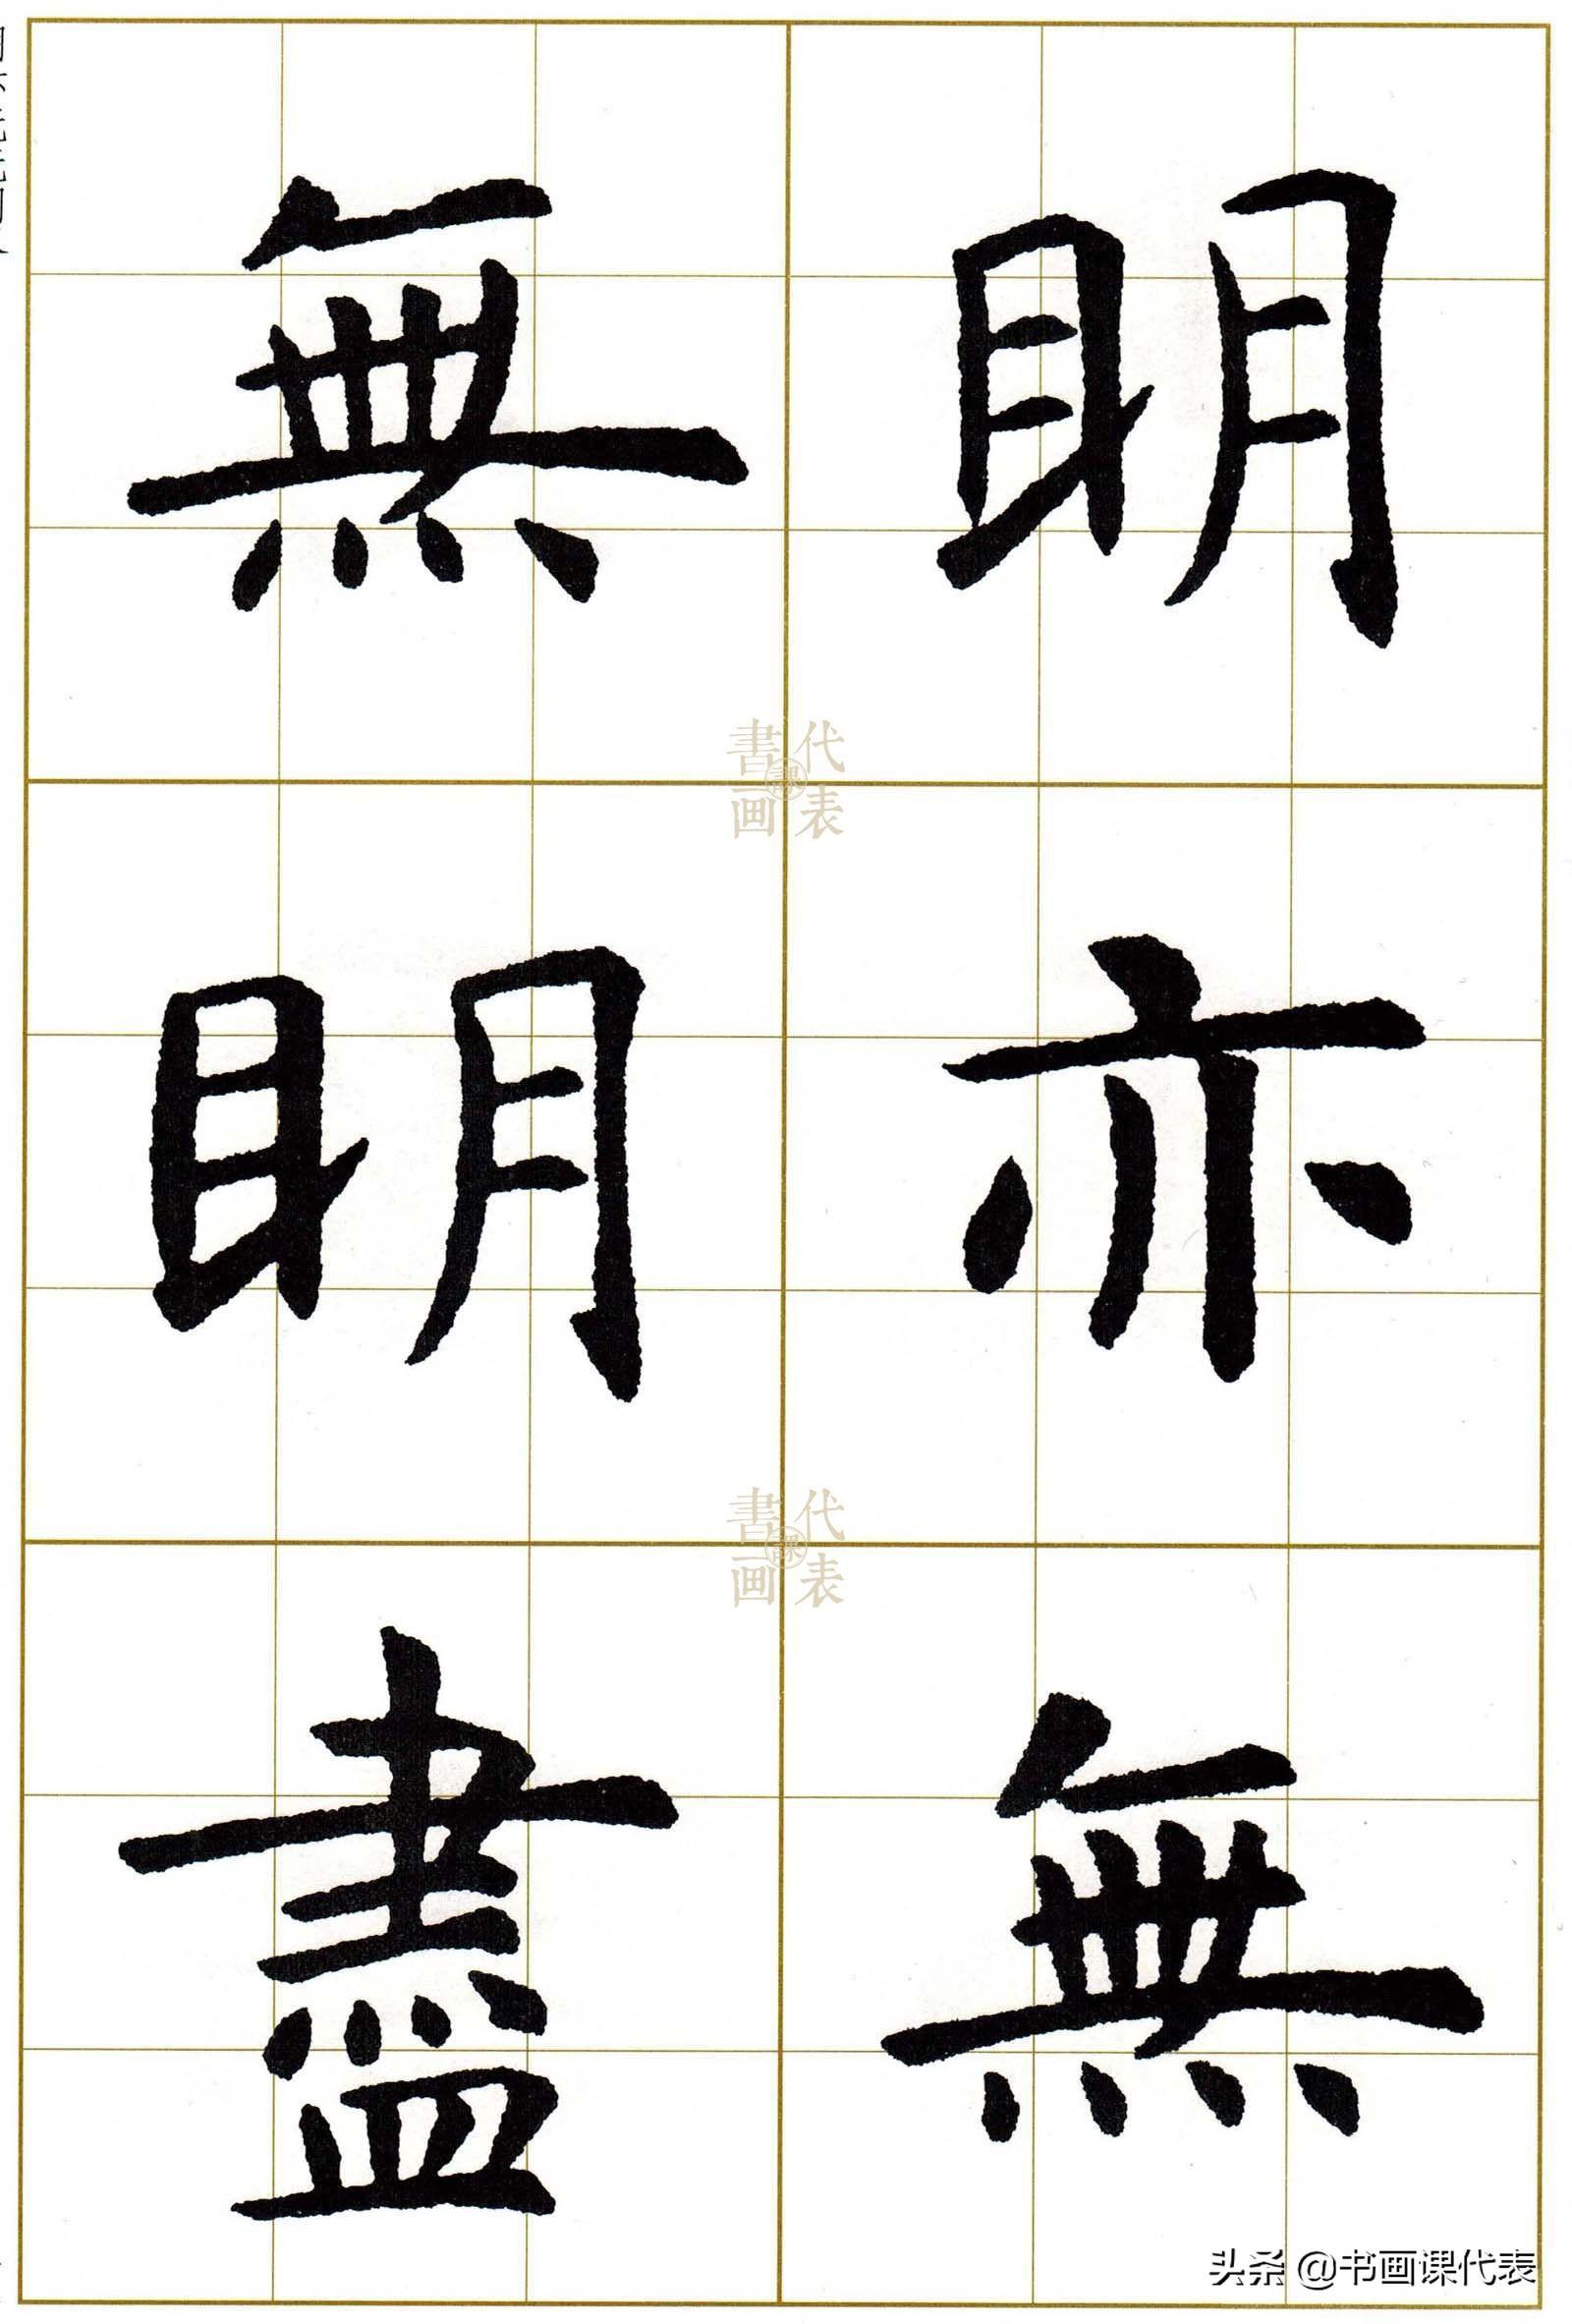 明亦無
無明盡
代表
書画
課
代表
書画
課
头条 @书画课代表